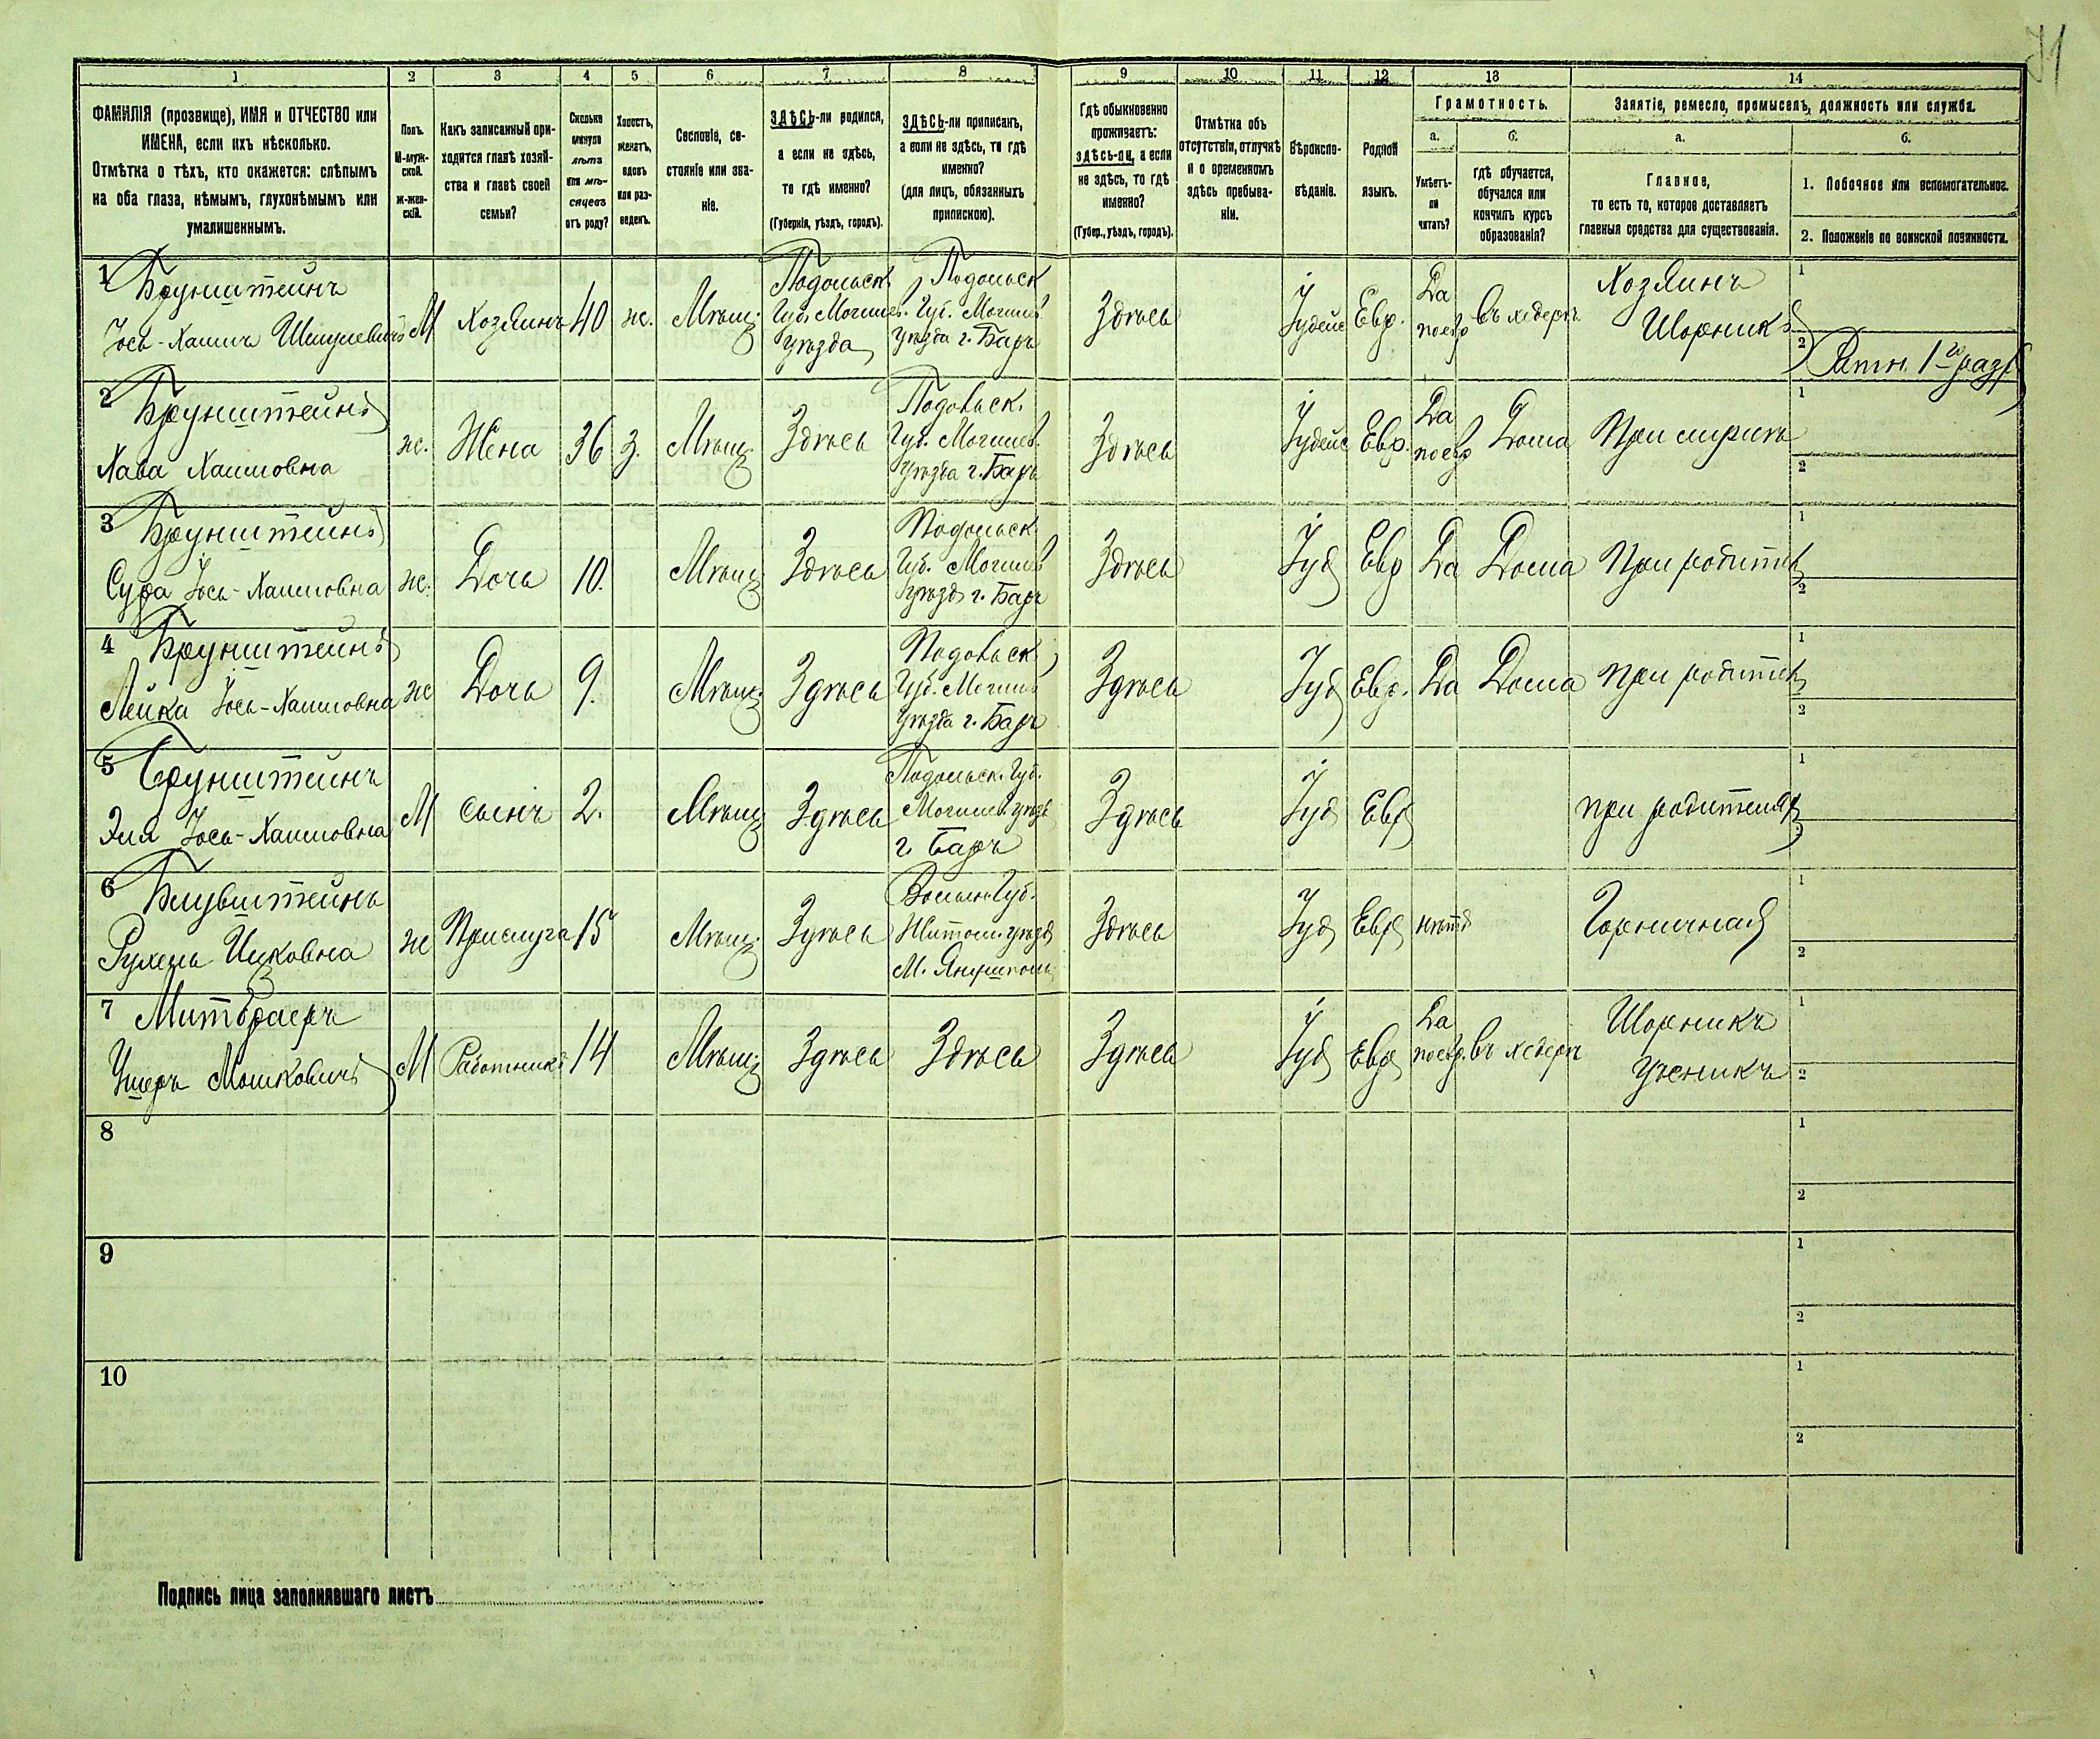 71
1 2 3 4 5 6 7 8 9 10 11 12 13 14
ФАМИЛІЯ (прозвище), ИМЯ и ОТЧЕСТВО или
ИМЕНА, если ихъ нѣсколько.
Отмѣтка о тѣхъ, кто окажется: слѣпымъ
на оба глаза, нѣмымъ, глухонѣмымъ или
умалишеннымъ.
Полъ.
М-муж-
ской.
ж-жен-
скій.
Какъ записанный при-
ходится главѣ хозяй-
ства и главѣ своей
семьи?
Сколько
минуло
лѣтъ
или мѣ-
сяцевъ
отъ роду?
Холостъ,
женатъ,
вдовъ
или раз-
веденъ.
Сословіе, со-
стояніе или зва-
ніе.
ЗДѢСЬ-ли родился,
а если не здѣсь,
то гдѣ именно?
(Губернія, уѣздъ, городъ).
ЗДѢСЬ-ли приписанъ,
а если не здѣсь, то гдѣ
именно?
(для лицъ, обязанныхъ
припискою).
Гдѣ обыкновенно
проживаетъ:
здѣсь-ли, а если
не здѣсь, то гдѣ
именно?
(Губер., уѣздъ, городъ).
Отмѣтка объ
отсутствіи, отлучкѣ
и о временномъ
здѣсь пребыва-
ніи.
Вѣроиспо-
вѣданіе.
Родной
языкъ.
Грамотность.
а. б.
Умѣетъ-
ли
читать?
гдѣ обучается,
обучался или
кончилъ курсъ
образованія?
Занятіе, ремесло, промыселъ, должность или служба.
а. б.
Главное,
то есть то, которое доставляетъ
главныя средства для существованія.
1. Побочное или вспомогательное.
2. Положеніе по воинской повинности.
1
Брунштейнъ
Іось-Хаимъ Шмулевичъ
М
Хозяинъ
40
ж.
Мѣщ.
Подольск.
Губ. Могилев.
уѣзда
Подольск
Губ. Могилев
уѣзда г. Баръ
Здѣсь
Іудейс
Евр.
Да
поевр
въ хедерѣ
Хозяинъ
Шорникъ
1
2
Ратн. 1го разр
2
Брунштейнъ
Хава Хаимовна
ж.
Жена
36
з.
Мѣщ.
Здѣсь
Подольск.
Губ. Могилев.
уѣзда г. Баръ
Здѣсь
Іудейс
Евр.
Да
поевр
Дома
При мужѣ
1
2
3
Брунштейнъ
Сура Іось-Хаимовна
ж.
Дочь
10.
Мѣщ
Здѣсь
Подольск
Губ. Могилев
уѣзд г. Баръ
Здѣсь
Іуд
Евр
Да
Дома
При родител
1
2
4
Брунштейнъ
Лейка Іось-Хаимовна
ж
Дочь
9.
Мѣщ.
Здѣсь
Подольск
Губ. Могилев
уѣзда г. Баръ
Здѣсь
Іуд
Евр.
Да
Дома
при родител
1
2
5
Брунштейнъ
Эля Іось-Хаимовна
М
сынъ
2.
Мѣщ
Здѣсь
Подольск. Губ.
Могилев. уѣзд
г. Баръ
Здѣсь
Іуд
Евр
при родителях
1
2
6
Блувштейнъ
Рухель Ицковна
ж
Прислуга
15
Мѣщ.
Здѣсь
Волын. Губ.
Житом. уѣзд
М. Янушполь
Здѣсь
Іуд
Евр
нѣтъ
Горничная
1
2
7
Митбраеръ
Ушеръ Мошковичъ
М
Работникъ
14
Мѣщ
Здѣсь
Здѣсь
Здѣсь
Іуд
Евр
Да
поевр.
въ хедерѣ
Шорникъ
ученикъ
1
2
8
1
2
9
1
2
10
1
2
Подпись лица заполнявшаго листъ